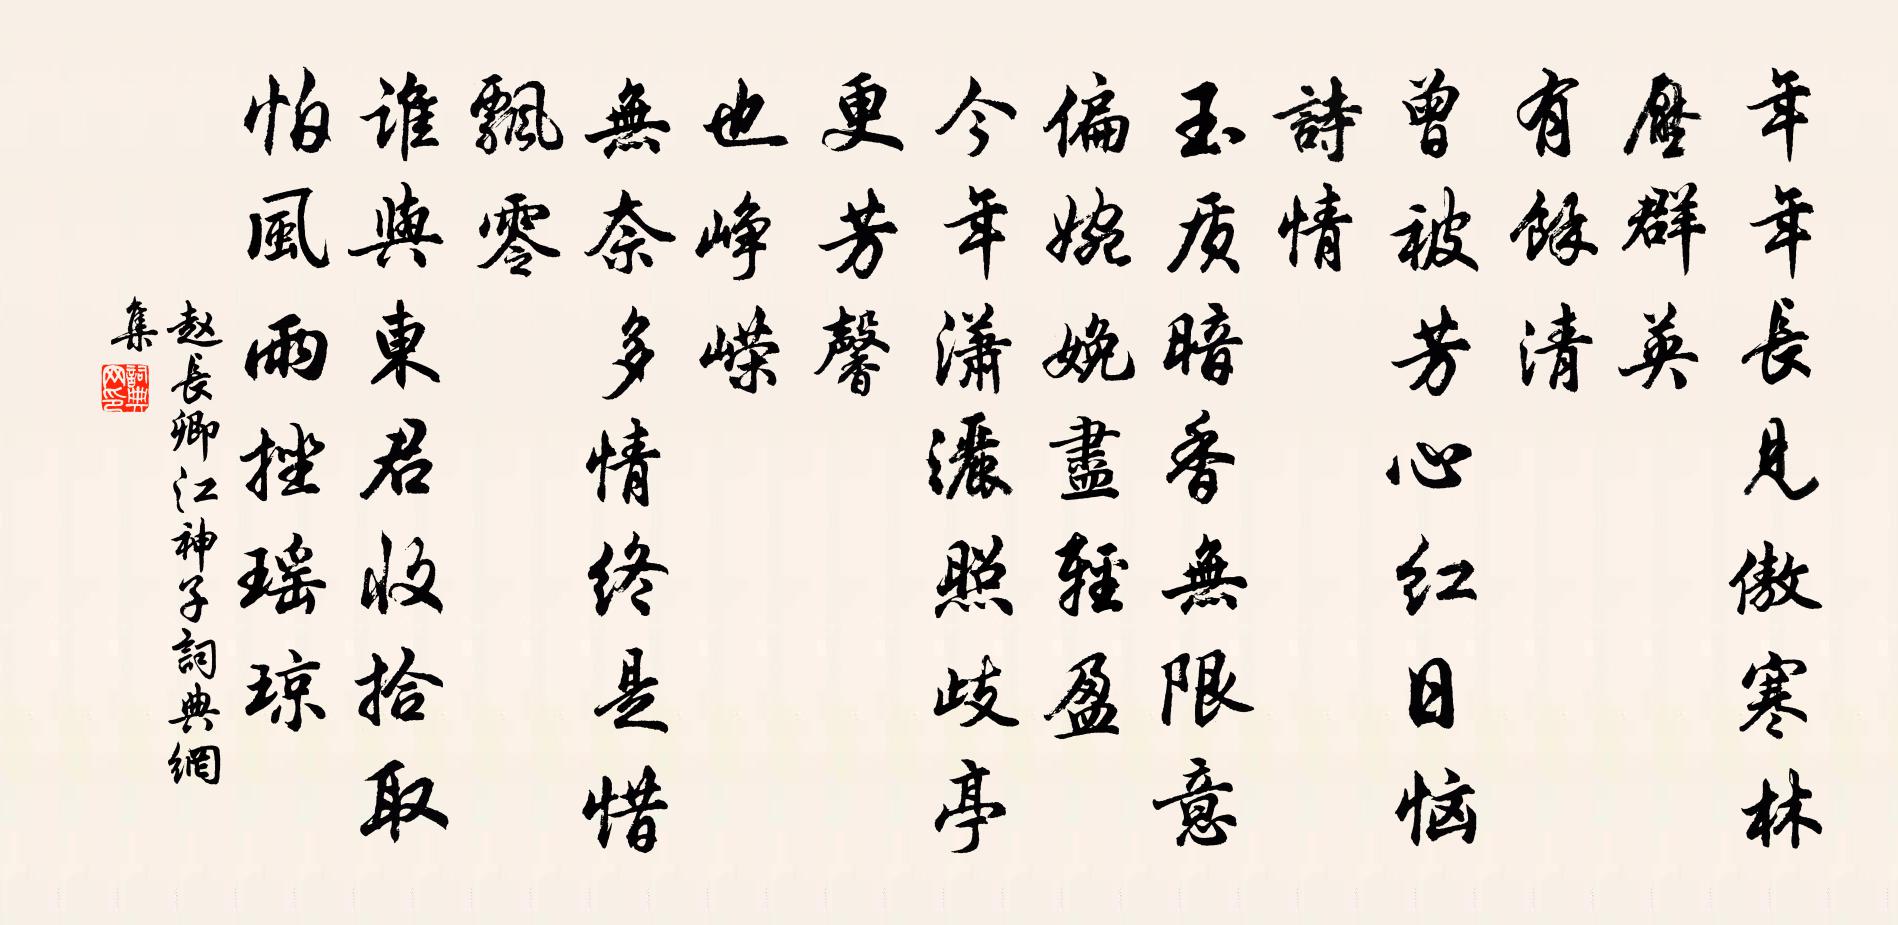 年年長見傲寒林
壓群英
有餘清
曾被芳心红日恼
詩情
玉质暗香無限意
偏婉娩盡輕盈
今年潇灑照歧亭
更芳馨
也峥嵘
無奈多情终是惜
飄零
谁與東君收拾取
怕風雨挫瑶琼
赵長卿江神子詞典網
集
詞典网印